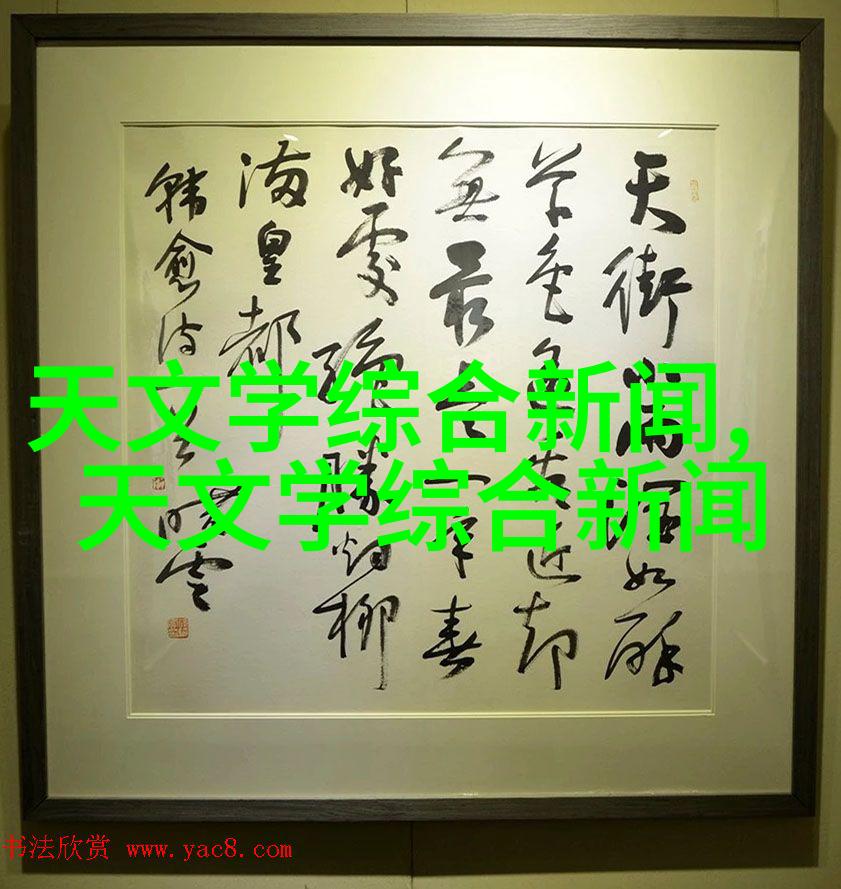 天街小雨潤如酥
草色遙看近却
無最是一年春
好處絕勝烟柳
滿皇都
韓愈詩一首
天文学综合新闻,
天文学综合新闻
书法欣赏 www.yac8.com